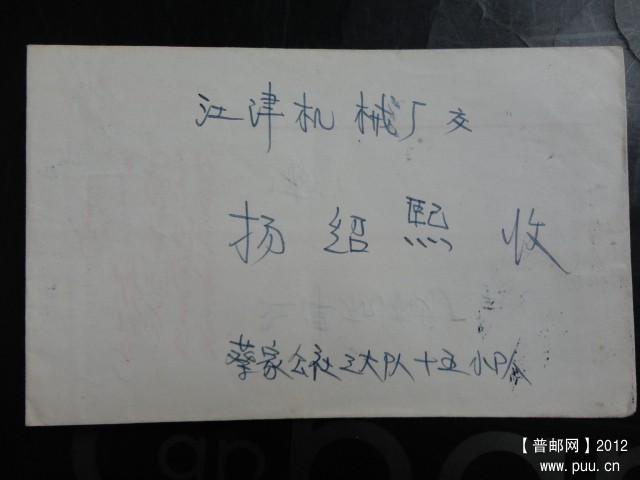 江津机械厂交
扬绍熙收
蔡家公社三大队十五小队
【普邮网】2012
www.puu.cn